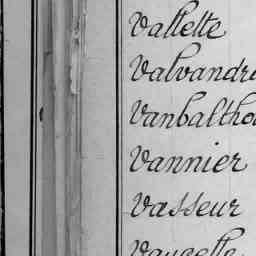 Vallette
Valvandre
Vanbaltho
Vannier
Vasseur